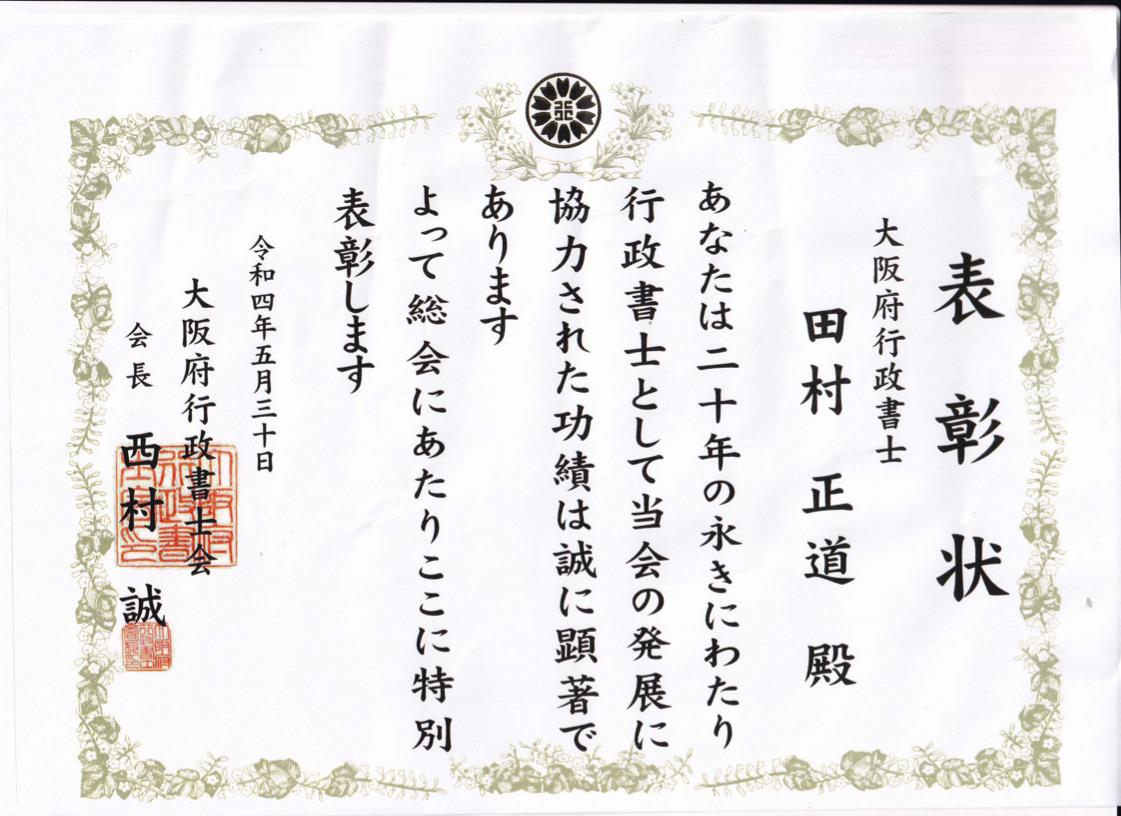 表彰状
大阪府行政書士
田村 正道 殿
あなたは二十年の永きにわたり
行政書士として当会の発展に
協力された功績は誠に顕著で
あります
よって総会にあたりここに特別
表彰します
令和四年五月三十日
大阪府行政書士会
会長 西村 誠